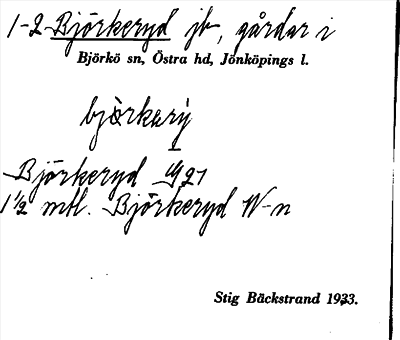 1-2 Björkeryd jb, gårdar i
Björkö sn, Östra hd, Jönköpings l.
björkarỳ
Björkeryd 1921
1 1/2 mtl. Björkeryd W-n
Stig Bäckstrand 1933.